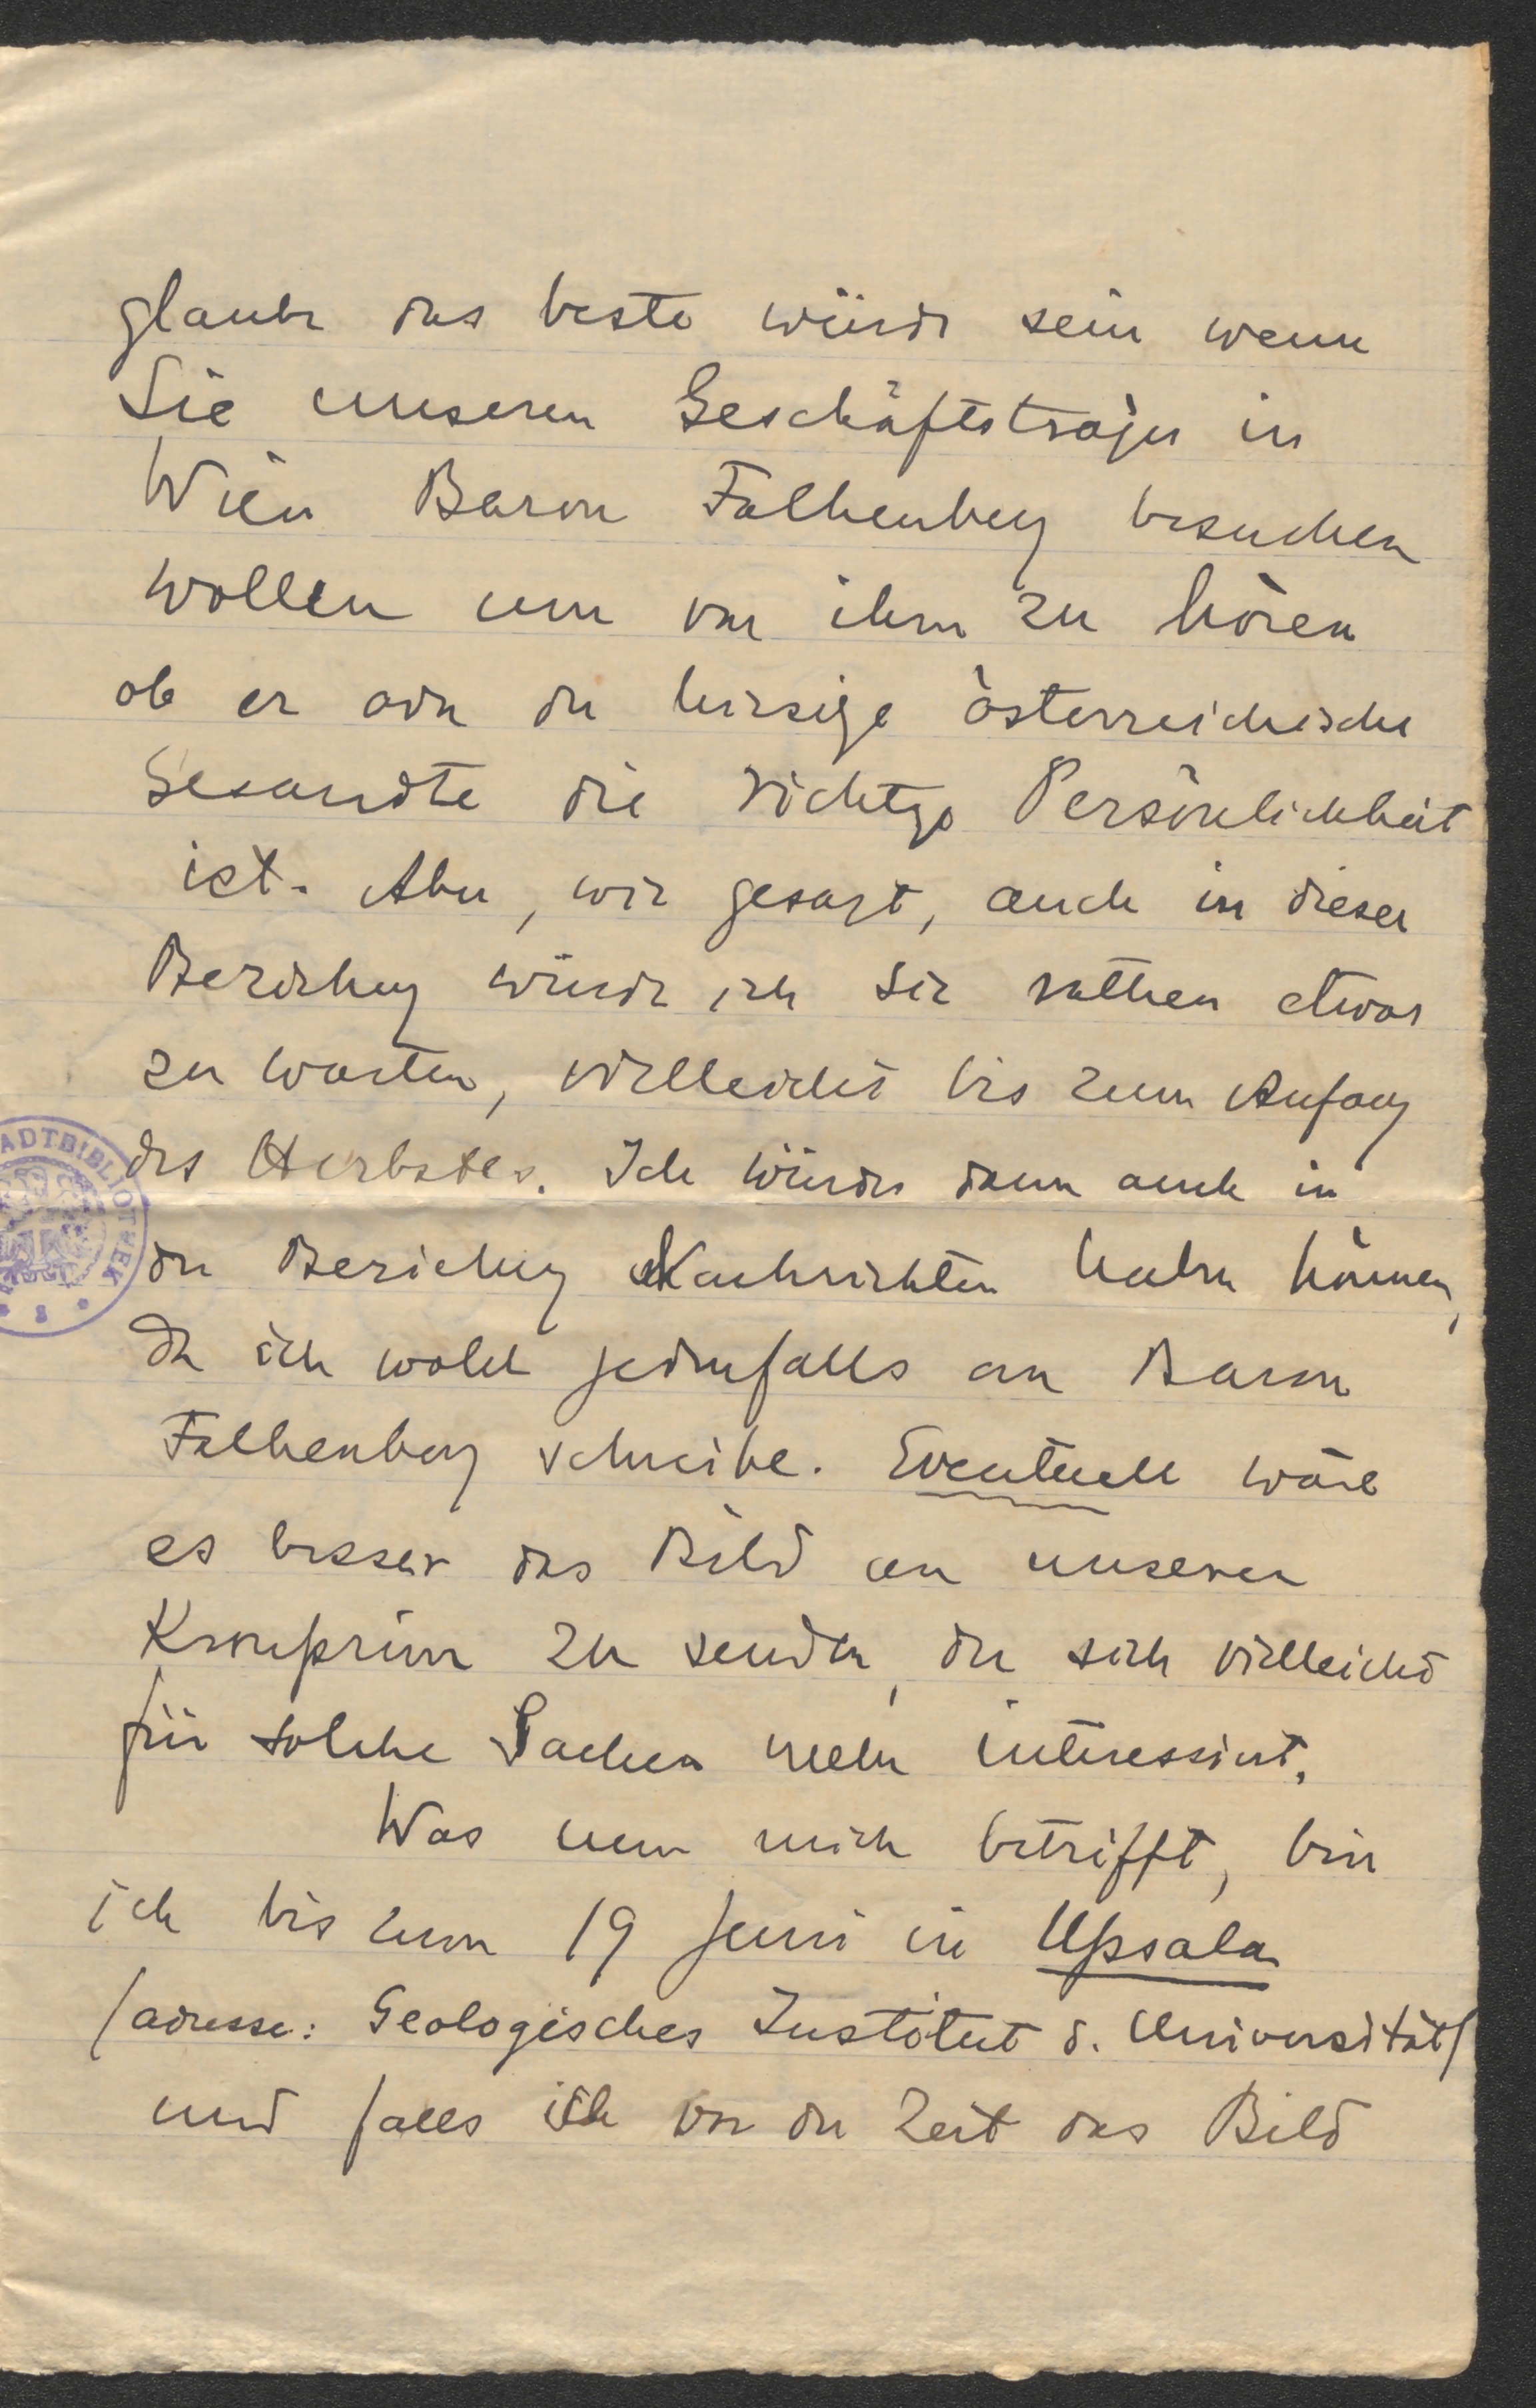 glaube das beste würde sein wenn
Sie unseren Geschäftsträger in
Wien Baron Falkenberg besuchen
wollen um von ihm zu hören
ob er oder der hiesige österreichische
Gesandte die richtige Persönlichkeit
ist. Aber, wie gesagt, auch in dieser
Beziehung würde ich Sie rathen etwas
zu warten, vielleicht bis zum Anfang
des Herbstes. Ich würde dann auch in
der Beziehung Nachrichten haben können,
da ich wohl jedenfalls an Baron
Falkenberg schreibe. Eventuell wäre
es besser das Bild an unseren
Kronprinz zu senden, der sich vielleicht
für solche Sachen mehr interessiert.
Was nun mich betrifft, bin
ich bis zum 19 Juni in Upsala
/adresse: Geologisches Institut d. Universität/
und falls ich vor der Zeit das Bild
ADTBIBLIOTHEK